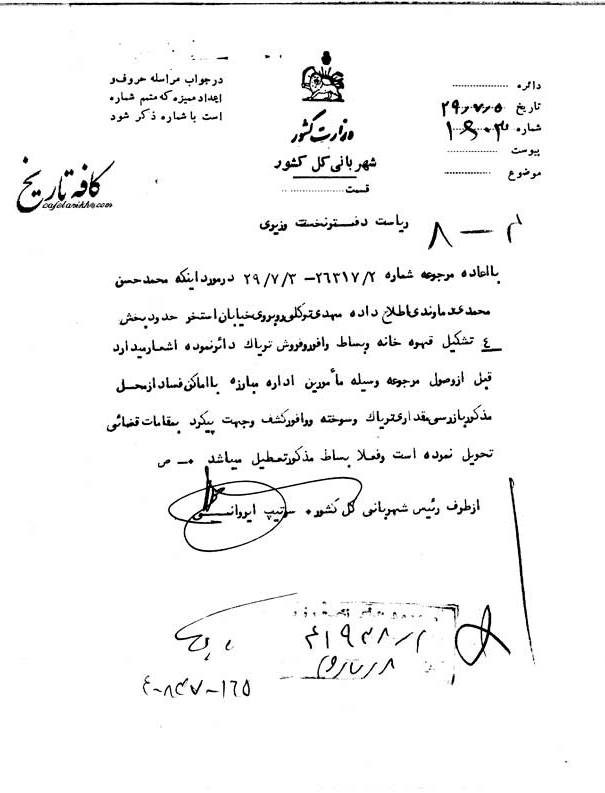 در جواب مراسله حروف و
اعداد ممیزه که متمم شماره
است با شماره ذکر شود
وزارت کشور
شهربانی کل کشور
قسمت
دائره
تاریخ ۲۹/۷/۵
شماره
پیوست
موضوع
کافه تاریخ
cafetarikh.com
ریاست دفتر نخست وزیری
۸ —
با اعاده مرجوعه شماره ۲۶۳۱۷/۲ – ۲۹/۷/۳ در مورد اینکه محمد حسن
محمدی دماوندی اطلاع داده مهدی توکلی روبروی خیابان استخر حدود بخش
٤ تشکیل قهوه خانه و بساط وافور و فروش تریاک دائر نموده اشعار میدارد
قبل از وصول مرجوعه وسیله مأمورین اداره مبارزه با اماکن فساد از محل
مذکور بازرسی مقداری تریاک و سوخته و وافور کشف و جهت پیگرد بمقامات قضائی
تحویل نموده است و فعلا بساط مذکور تعطیل میباشد ۰ـ ص
از طرف رئیس شهربانی کل کشور۰ سرتیپ ایروانی